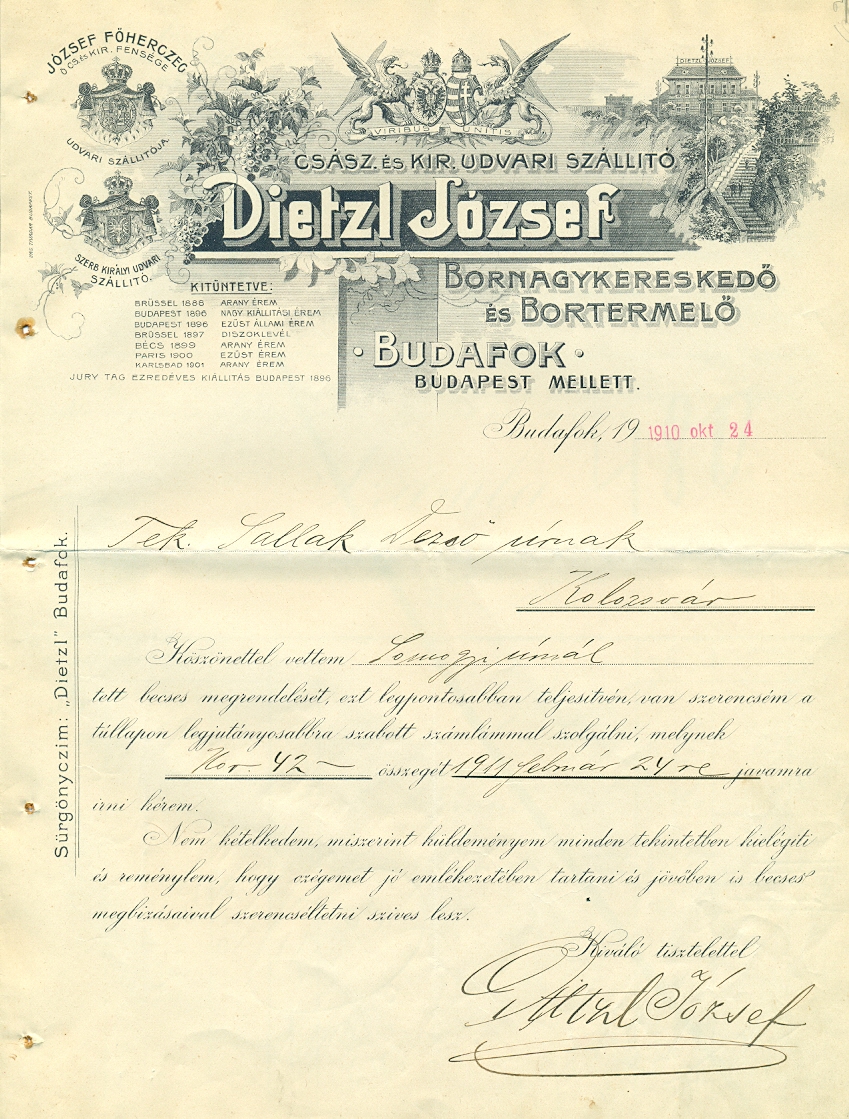 JÓZSEF FŐHERCZEG
Ő CS. ÉS KIR. FENSÉGE
UDVARI SZÁLLITÓJA
SZERB KIRÁLYI UDVARI
SZÁLLITÓ.
VIRIBUS UNITIS
DIETZL JÓZSEF
CSÁSZ. ÉS KIR. UDVARI SZÁLLITÓ
Dietzl József
BORNAGYKERESKEDŐ
ÉS BORTERMELŐ
· BUDAFOK ·
BUDAPEST MELLETT.
KITÜNTETVE:
BRÜSSEL 1888 ARANY ÉREM
BUDAPEST 1896 NAGY KIÁLLITÁSI ÉREM
BUDAPEST 1896 EZÜST ÁLLAMI ÉREM
BRÜSSEL 1897 DISZOKLEVÉL
BÉCS 1899 ARANY ÉREM
PARIS 1900 EZÜST ÉREM
KARLSBAD 1901 ARANY ÉREM
JURY TAG EZREDÉVES KIÁLLITÁS BUDAPEST 1896
Budafok, 19 1910 okt 24
Tek. Sallak Dezső úrnak
Kolozsvár
Sürgönyczim: „Dietzl" Budafok.
Köszönettel vettem Somogyi úrnál
tett becses megrendelését, ezt legpontosabban teljesitvén, van szerencsém a
túllapon legjutányosabbra szabott számlámmal szolgálni, melynek
Kor. 42 — összegét 1911 február 24 re javamra
irni kérem.
Nem kételkedem, miszerint küldeményem minden tekintetben kielégiti
és reménylem, hogy czégemet jó emlékezetében tartani és jövőben is becses
megbizásaival szerencséltetni szives lesz.
Kiváló tisztelettel
Dietzl József